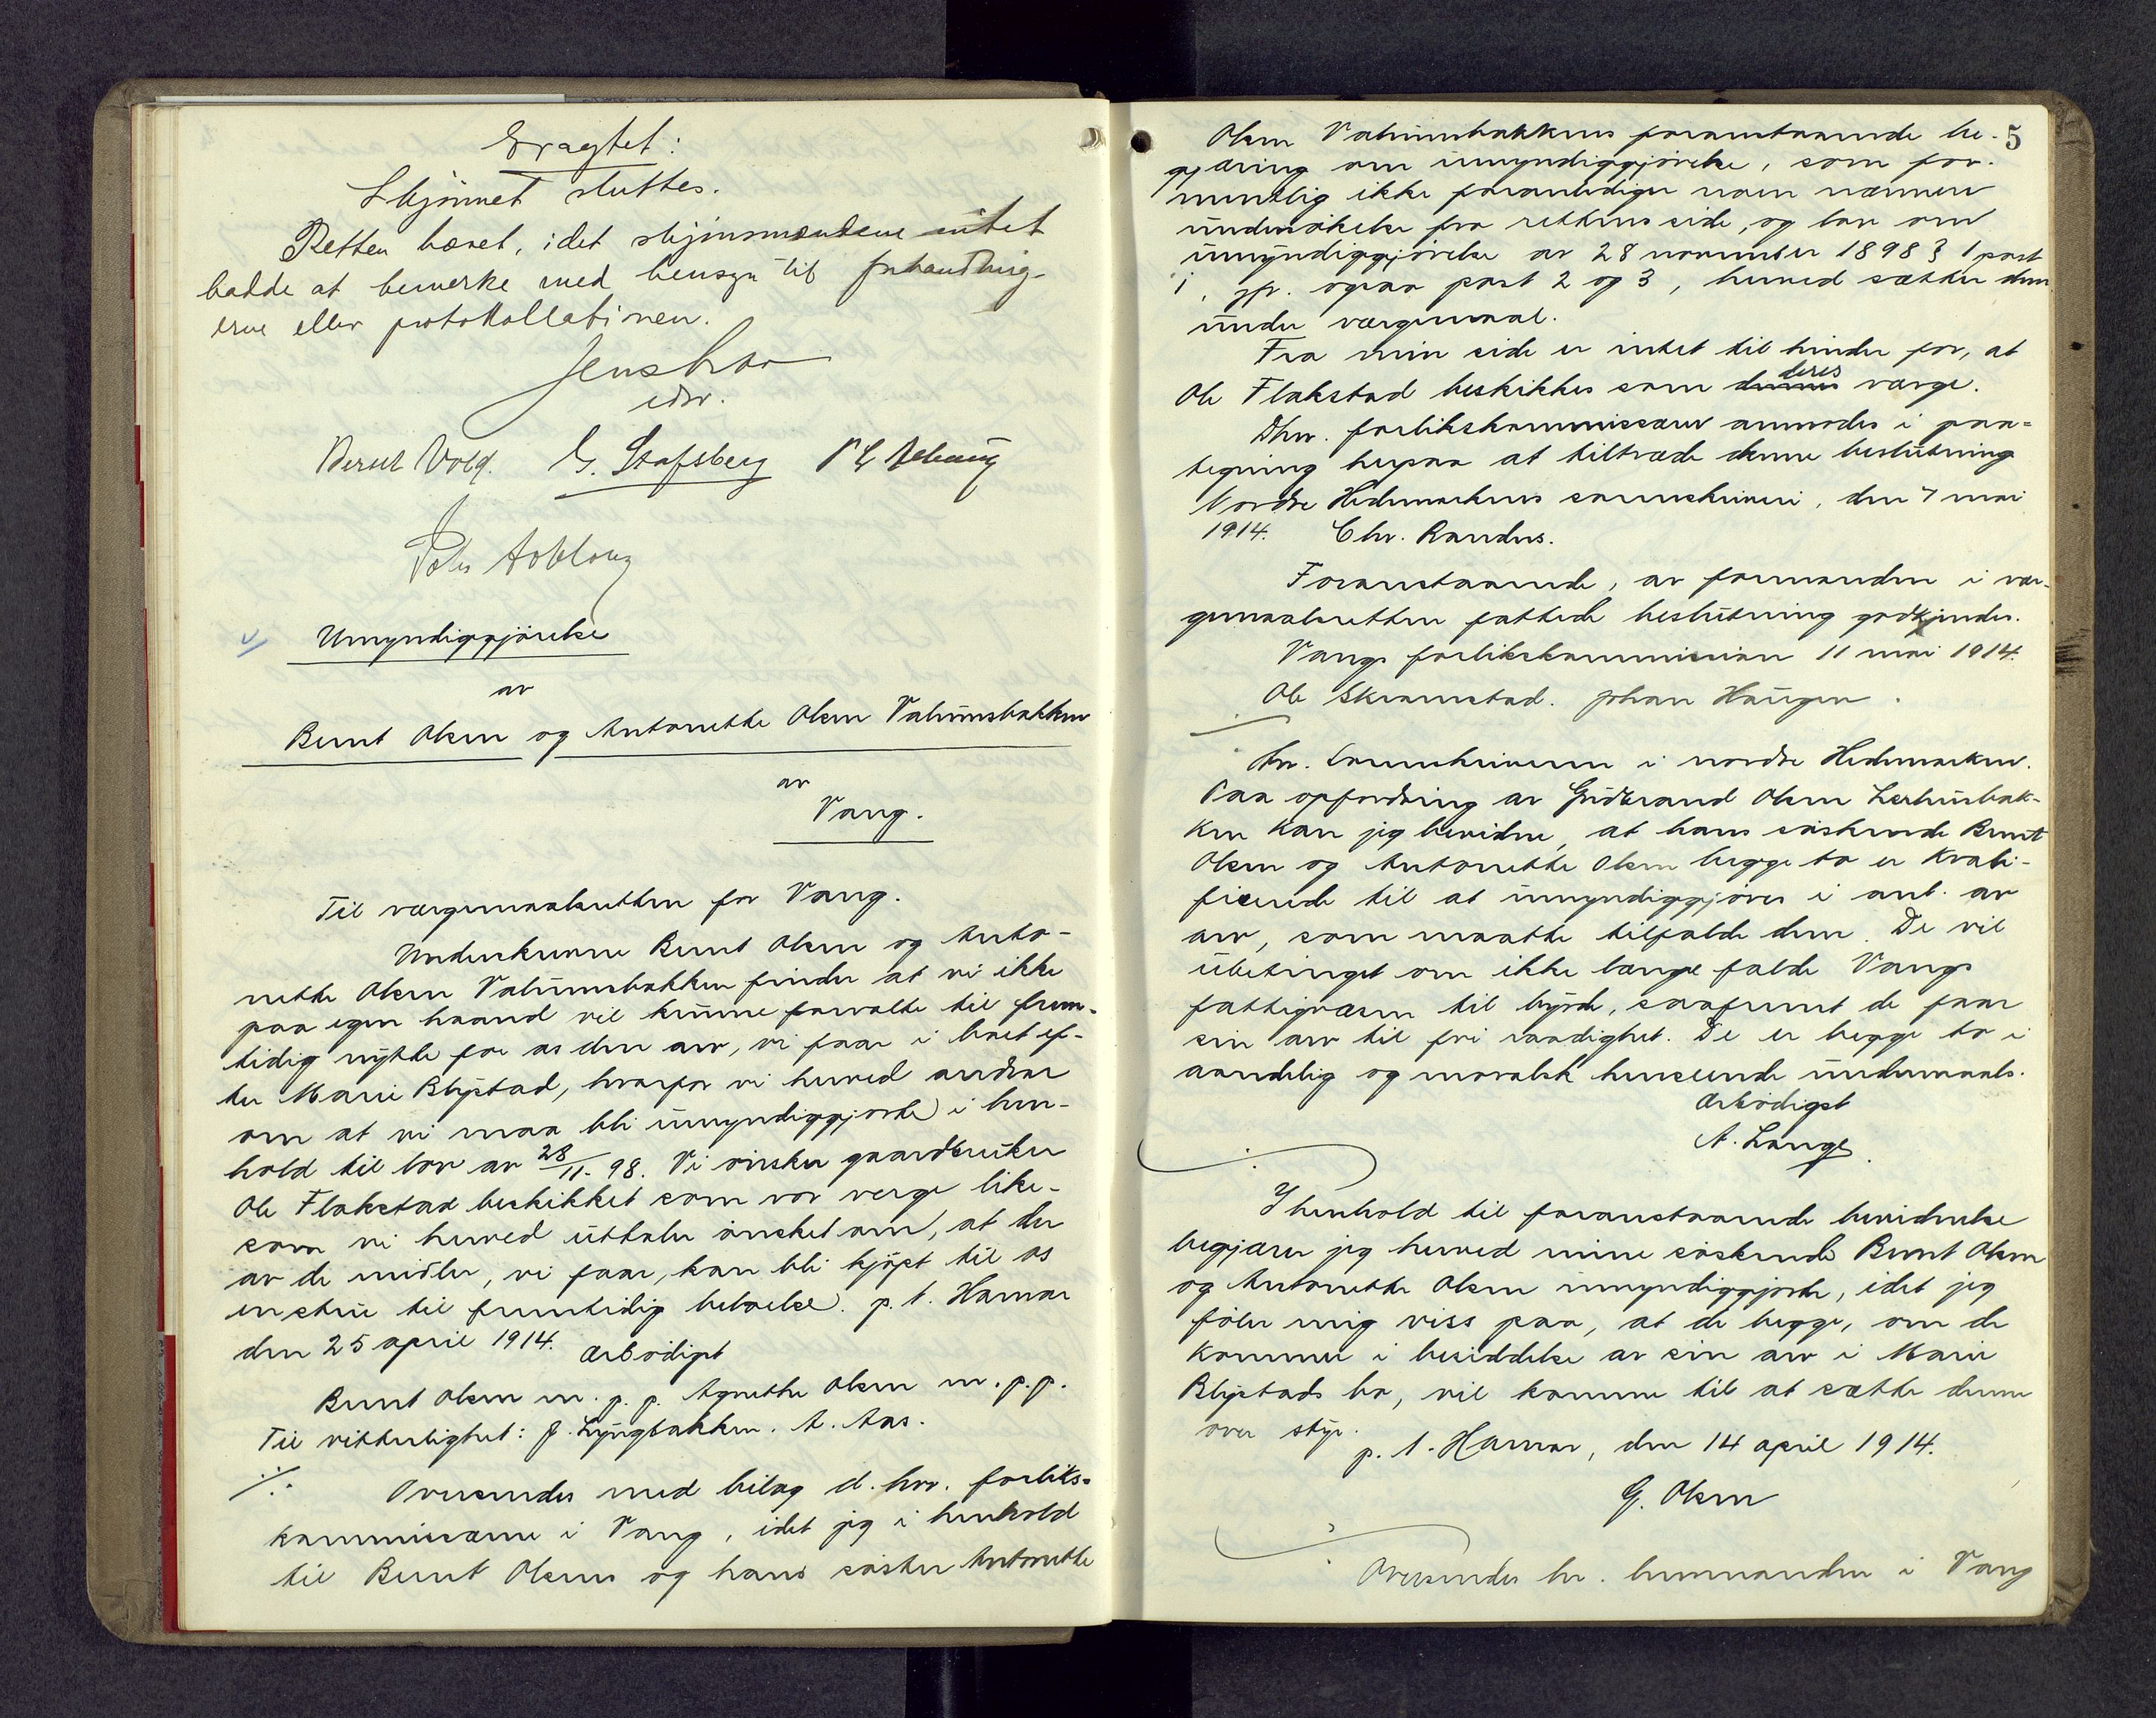 Eragtet:
Skjönnet sluttes.
Retten hævet, idet skjönsmændene intet
hadde at bemerke med hensyn til forhandling-
erne eller protokollationen.
edsv.
Bernt Vold. G. Stafsberg
Peder
Umyndiggjörelse
av
Bernt Olsen og Antonette Olsen Valumsbakken
av
Vang.
Til værgemaalsretten for Vang.
Underskrevne Bernt Olsen og Anto-
nette Olsen Valumsbakken finder at vi ikke
paa egen haand vil kunne forvalte til frem-
tidig nytte for os den arv, vi faar i boet ef-
ter Marie Blystad, hvorfor vi herved andrar
om at vi maa bli umyndiggjorte i hen-
hold til lov av 28/11-98. Vi önsker gaardbruker
Ole Flakstad beskikket som vor verge like-
som vi herved uttaler önsket om, at der
av de midler, vi faar, kan bli kjöpt til os
en stue til fremtidig beboelse. p. t. Hamar
den 25 april 1914. Ærbödigst
Bernt Olsen m. p. p. Agnethe Olsen m. p. p.
Til vitterlighet: J. Lyngbakken. A. Aas.
./. Oversendes med bilag d. hrr. forliks-
kommissærer i Vang, idet jeg i henhold
til Bernt Olsens og hans söster Antonette
5
Olsen Valumsbakkens foranstaaende be-
gjæring om umyndiggjörelse, som for-
mentlig ikke foranlediger noen nærmere
undersökelse fra rettens side, og lov om
umyndiggjörelse av 28 november 1898 § 1 post
1, jfr. ogsaa post 2 og 3, herved sætter dem
under værgemaal.
Fra min side er intet til hinder for, at
Ole Flakstad beskikkes som dennes deres værge.
Dhrr. forlikskommissærer anmodes i paa-
tegning herpaa at tiltræde denne beslutning
Nordre Hedemarkens sorenskriveri, den 7 mai
1914. Chr. Randers.
Foranstaaende, av formanden i vær-
gemaalsretten fattede beslutning godkjendes.
Vangs forlikskommission 11 mai 1914.
Ole Skramstad. Johan Haugen.
Hr. Sorenskriveren i nordre Hedemarken.
Paa opfordring av Gudbrand Olsen Lerhusbak-
ken kan jeg bevidne, at hans söskende Bernt
Olsen og Antonette Olsen begge to er kvali-
ficerede til at umyndiggjöres i anl. av
arv, som maatte tilfalde dem. De vil
ubetinget om ikke længe falde Vangs
fattigvæsen til byrde, saafremt de faar
sin arv til fri raadighet. De er begge to i
aandelig og moralsk henseende undermaals.
Ærbödigst
A. Lange
I henhold til foranstaaende bevidnelse
begjærer jeg herved mine söskende Bernt Olsen
og Antonette Olsen umyndiggjorte, idet jeg
föler mig viss paa, at de begge, om de
kommer i besiddelse av sin arv i Marie
Blystads bo, vil komme til at sætte denne
over styr.
p. t. Hamar, den 14 april 1914.
G. Olsen
Oversendes hr. lensmanden i Vang